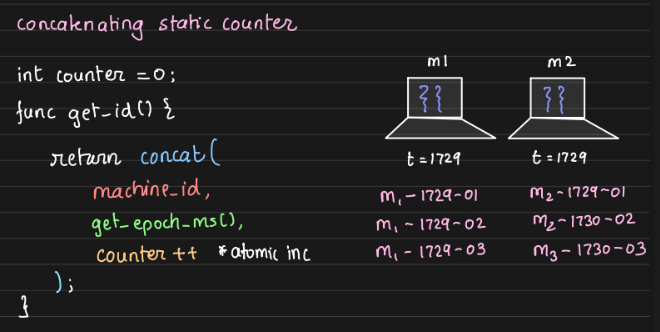 concatenating static counter
int counter = 0;
func get-id() {
return concat(
machine_id,
get_epoch_ms(),
counter ++ *atomic inc
);
}
m1 m2
}} }}
t = 1729 t = 1729
m1 - 1729 - 01 m2 - 1729 - 01
m1 - 1729 - 02 m2 - 1730 - 02
m1 - 1729 - 03 m3 - 1730 - 03